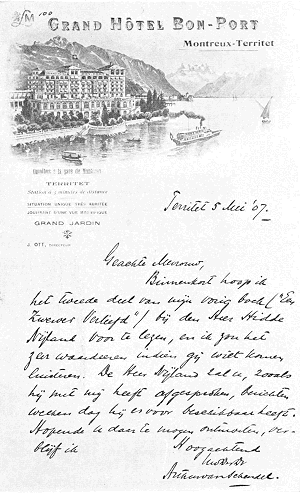 GRAND HÔTEL BON-PORT
Montreux-Territet
TERRITET
Station à 5 minutes de distance
SITUATION UNIQUE TRÈS ABRITÉE
JOUISSANT D'UNE VUE MAGNIFIQUE
GRAND JARDIN
J. OTT, DIRECTEUR
Territet 5 Mei '07.
Geachte Mevrouw,
Binnenkort hoop ik
het tweede deel van mijn vorig boek ("Een
Zwerver Verliefd") bij den Heer Hidde
Nijland voor te lezen, en ik zou het
zeer waardeeren indien gij wilt komen
luisteren. De Heer Nijland zal u, zooals
hij met mij heeft afgesproken, berichten
welken dag hij ervoor beschikbaar heeft.
Hopende u daar te mogen ontmoeten, ver-
blijf ik
Hoogachtend
Arthur van Schendel.